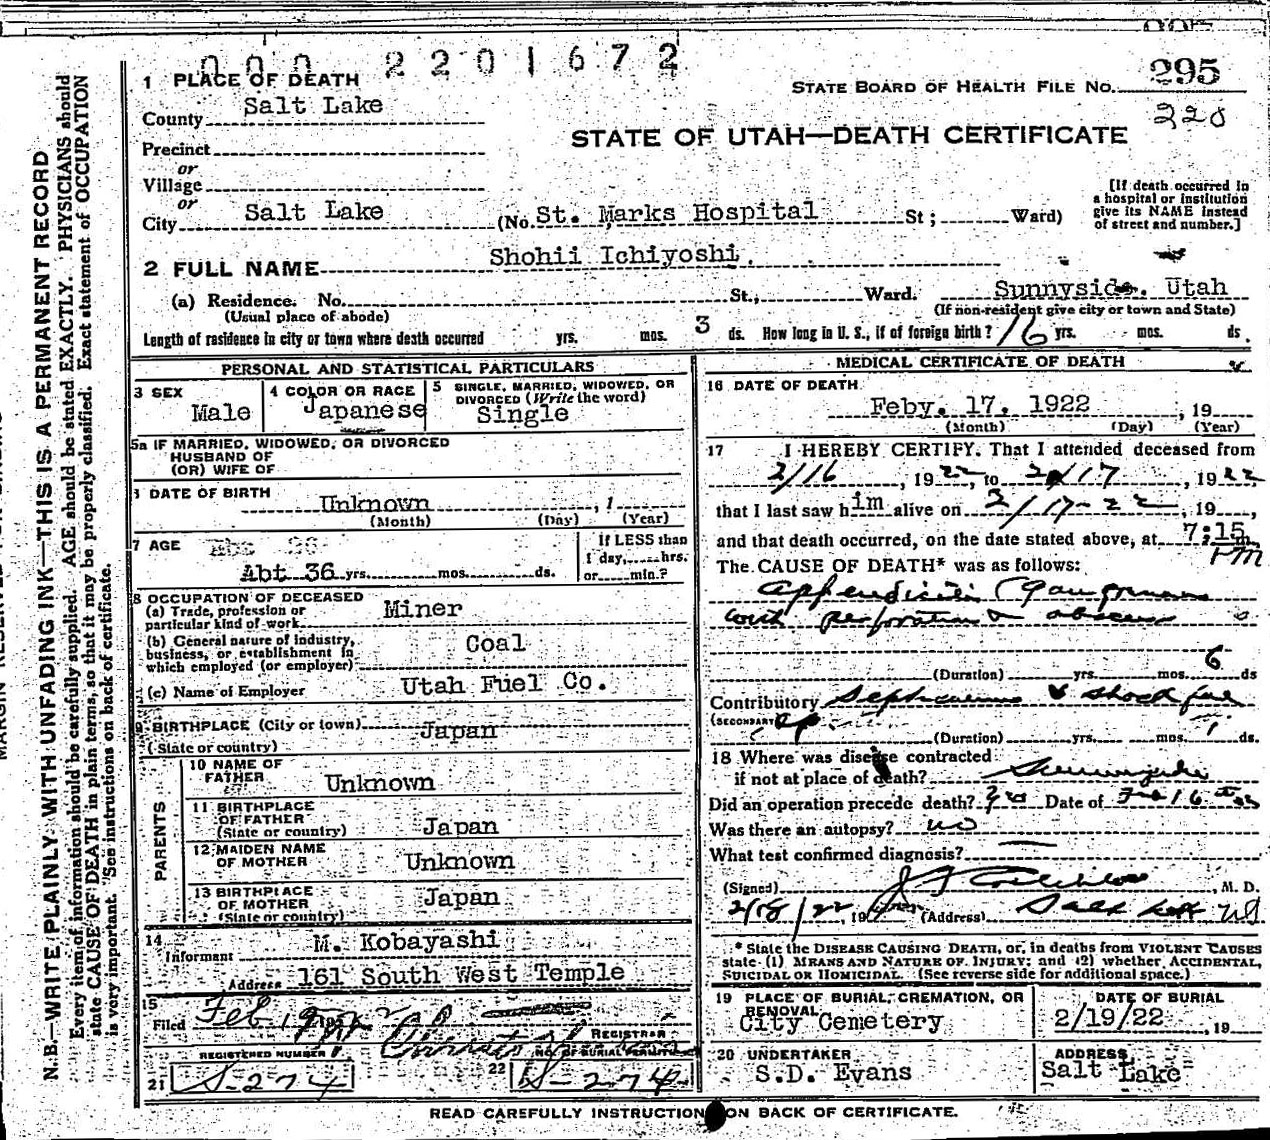 000 2201672
1 PLACE OF DEATH
STATE BOARD OF HEALTH FILE NO. 295
County Salt Lake
220
STATE OF UTAH—DEATH CERTIFICATE
Precinct
or
Village
or
City Salt Lake (No. St. Marks Hospital St; Ward)
[If death occurred in
a hospital or institution
give its NAME instead
of street and number.]
2 FULL NAME Shohii Ichiyoshi
(a) Residence. No. St., Ward. Sunnyside. Utah
(Usual place of abode) (If non-resident give city or town and State)
Length of residence in city or town where death occurred yrs. mos. 3 ds. How long in U. S., if of foreign birth? 16 yrs. mos. ds.
PERSONAL AND STATISTICAL PARTICULARS
3 SEX
Male
4 COLOR OR RACE
Japanese
5 SINGLE, MARRIED, WIDOWED, OR
DIVORCED (Write the word)
Single
5a IF MARRIED, WIDOWED, OR DIVORCED
HUSBAND OF
(OR) WIFE OF
DATE OF BIRTH Unknown , 1
(Month) (Day) (Year)
7 AGE
Abt 36 yrs. mos. ds.
If LESS than
1 day, hrs.
or min.?
8 OCCUPATION OF DECEASED
(a) Trade, profession or
particular kind of work Miner
(b) General nature of industry,
business, or establishment in
which employed (or employer) Coal
(c) Name of Employer Utah Fuel Co.
9 BIRTHPLACE (City or town) Japan
(State or country)
PARENTS
10 NAME OF
FATHER Unknown
11 BIRTHPLACE
OF FATHER
(State or country) Japan
12 MAIDEN NAME
OF MOTHER Unknown
13 BIRTHPLACE
OF MOTHER
(State or country) Japan
14
Informant M. Kobayashi
Address 161 South West Temple
15
Filed Feb
REGISTRAR
REGISTERED NUMBER
21 S-274
NO. OF BURIAL PERMIT
22 S-274
MEDICAL CERTIFICATE OF DEATH
16 DATE OF DEATH
Feby. 17. 1922 , 19
(Month) (Day) (Year)
17 I HEREBY CERTIFY. That I attended deceased from
2/16 , 1922, to 2/17 , 1922
that I last saw him alive on 2/17-22 , 19 ,
and that death occurred, on the date stated above, at 7:15 m.
PM
The CAUSE OF DEATH* was as follows:
Appendicitis Gangrenous
with perforation & abscess
(Duration) yrs. mos. 6 ds
Contributory Septicaemia & shock
(SECONDARY)
(Duration) yrs. mos. 1 ds.
18 Where was disease contracted
if not at place of death? Sunnyside
Did an operation precede death? Date of Feb 16th
Was there an autopsy? no
What test confirmed diagnosis?
(Signed) , M. D.
2/18/22, 19 (Address) Salt Lake
* State the DISEASE CAUSING DEATH, or, in deaths from VIOLENT CAUSES
state (1) MEANS AND NATURE OF INJURY; and (2) whether ACCIDENTAL,
SUICIDAL OR HOMICIDAL. (See reverse side for additional space.)
19 PLACE OF BURIAL, CREMATION, OR
REMOVAL
City Cemetery
DATE OF BURIAL
2/19/22 , 19
20 UNDERTAKER
S.D. Evans
ADDRESS
Salt Lake
READ CAREFULLY INSTRUCTION ON BACK OF CERTIFICATE.
N.B.—WRITE PLAINLY, WITH UNFADING INK—THIS IS A PERMANENT RECORD
Every item of information should be carefully supplied. AGE should be stated EXACTLY. PHYSICIANS should
state CAUSE OF DEATH in plain terms, so that it may be properly classified. Exact statement of OCCUPATION
is very important. See instructions on back of certificate.